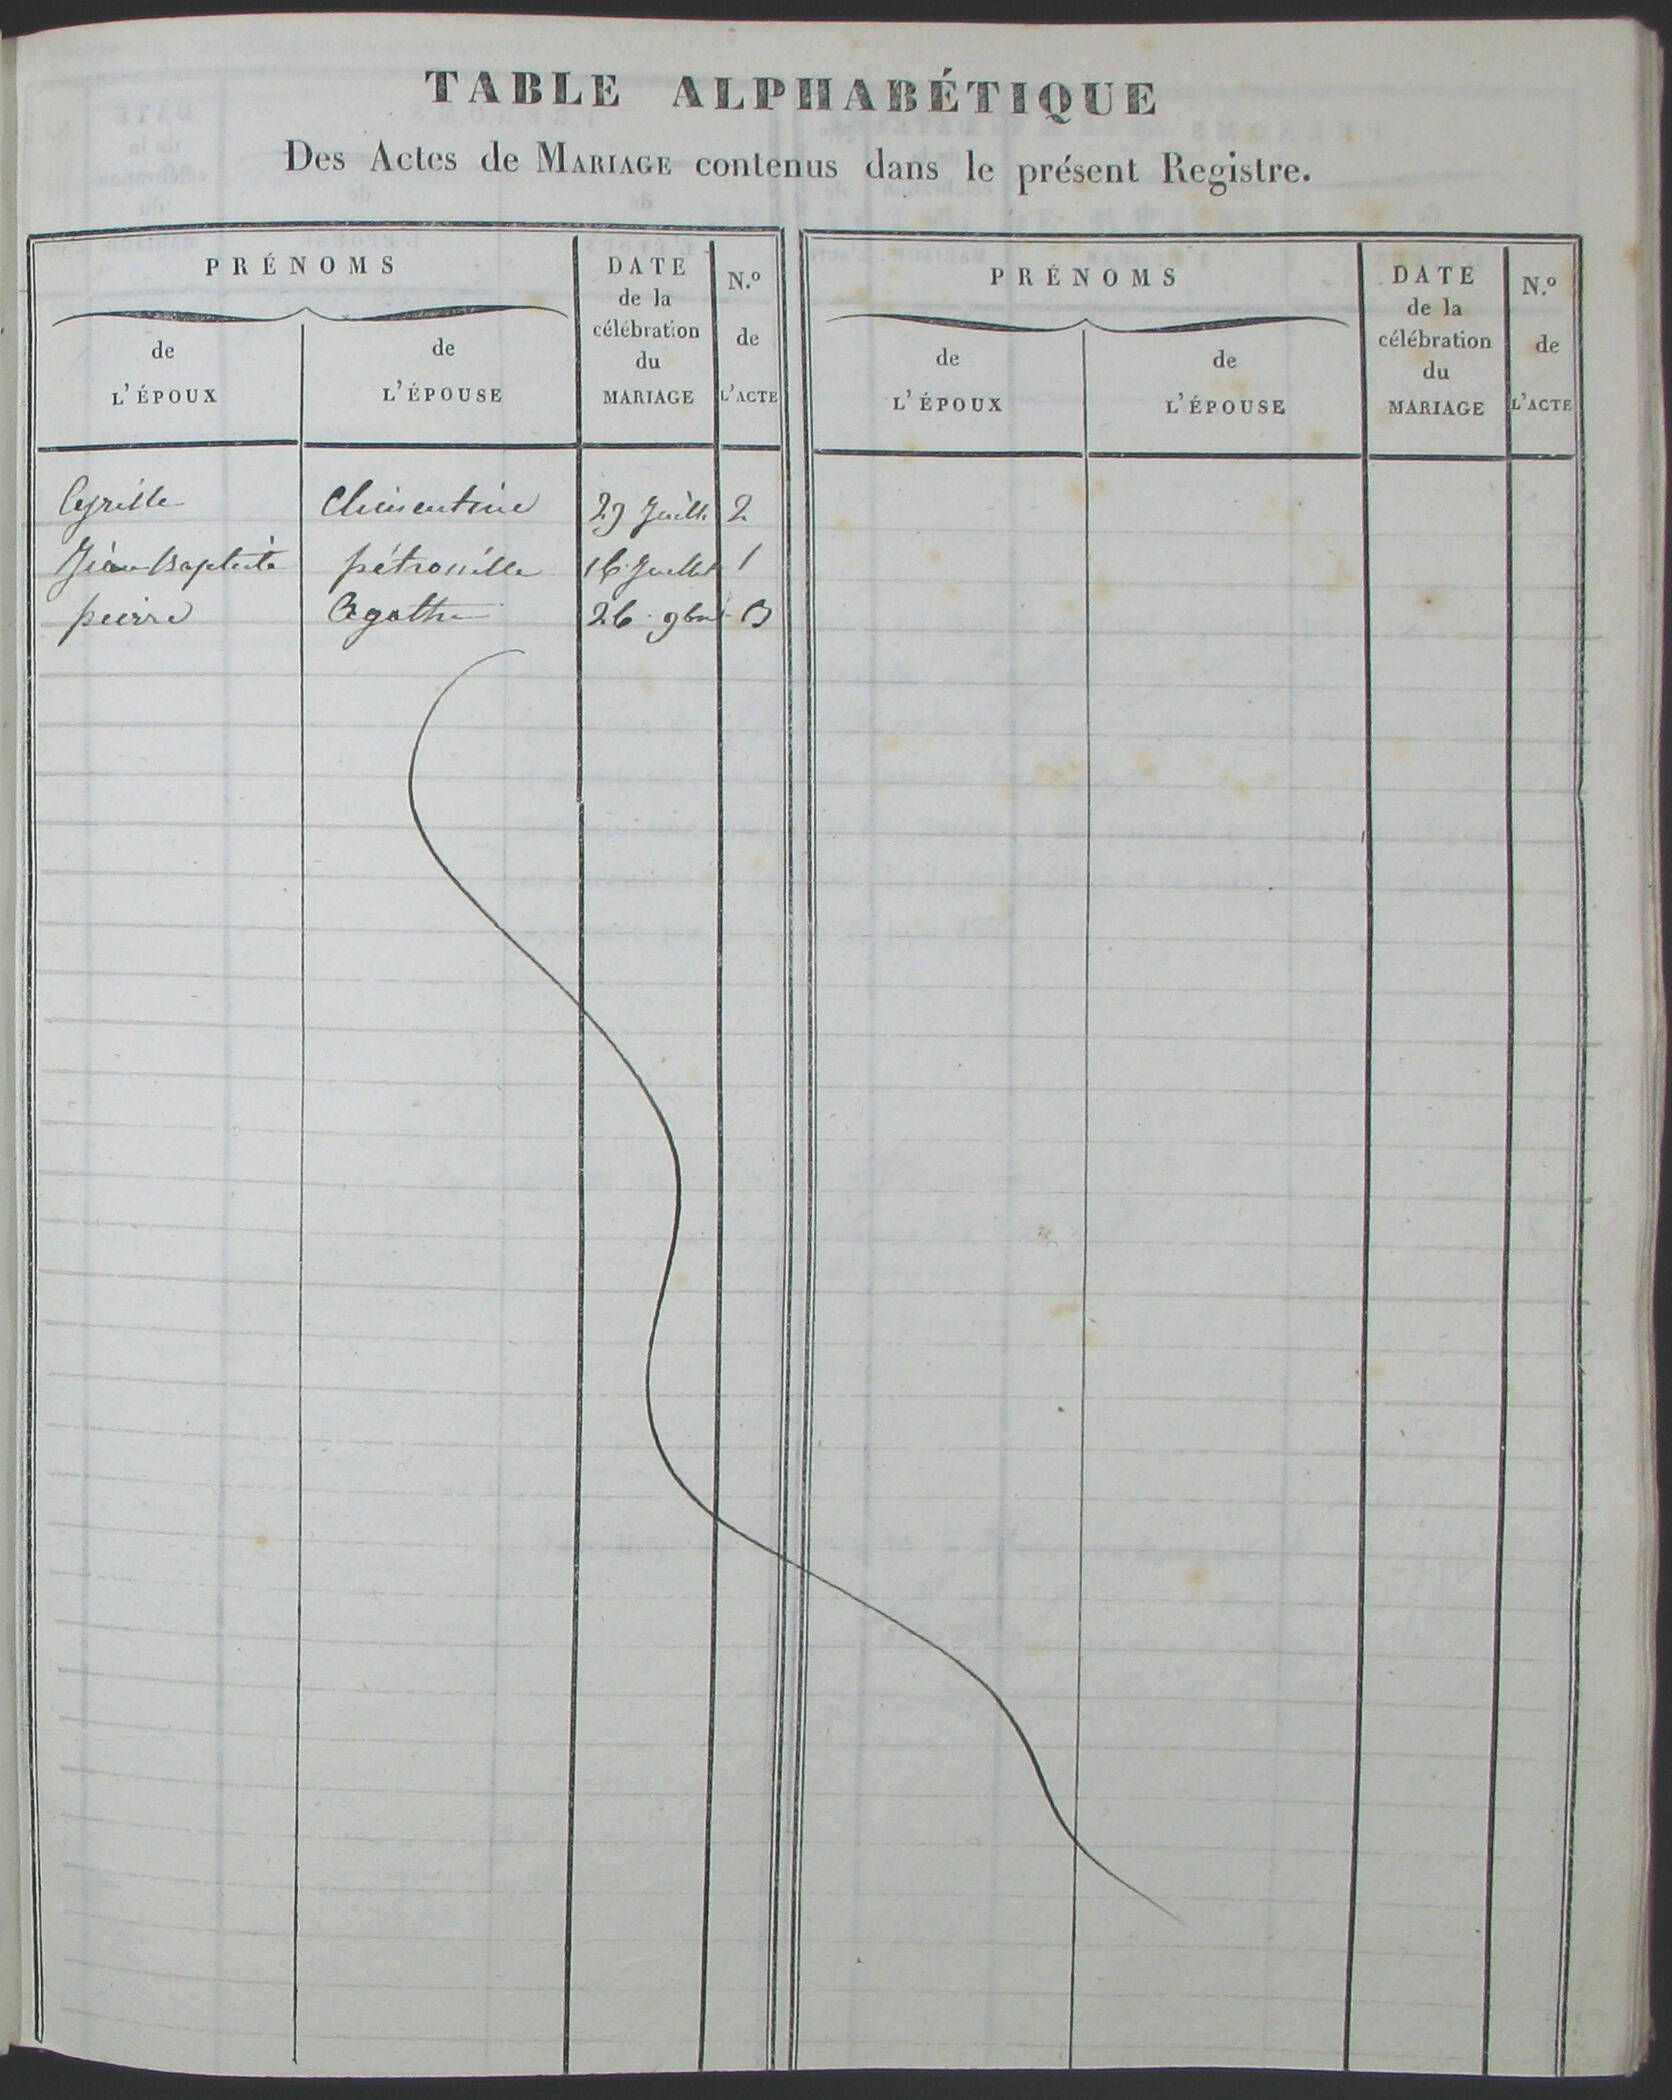 TABLE ALPHABÉTIQUE
Des Actes de MARIAGE contenus dans le présent Registre.
PRÉNOMS
de
L'ÉPOUX
de
L'ÉPOUSE
DATE
de la
célébration
du
MARIAGE
N.º
de
L'ACTE
Cyrille Clémentine 29 Juill. 2
Jean Baptiste pétronille 16 Juillet 1
pierre Agathe 26 9bre 3
PRÉNOMS
de
L'ÉPOUX
de
L'ÉPOUSE
DATE
de la
célébration
du
MARIAGE
N.º
de
L'ACTE